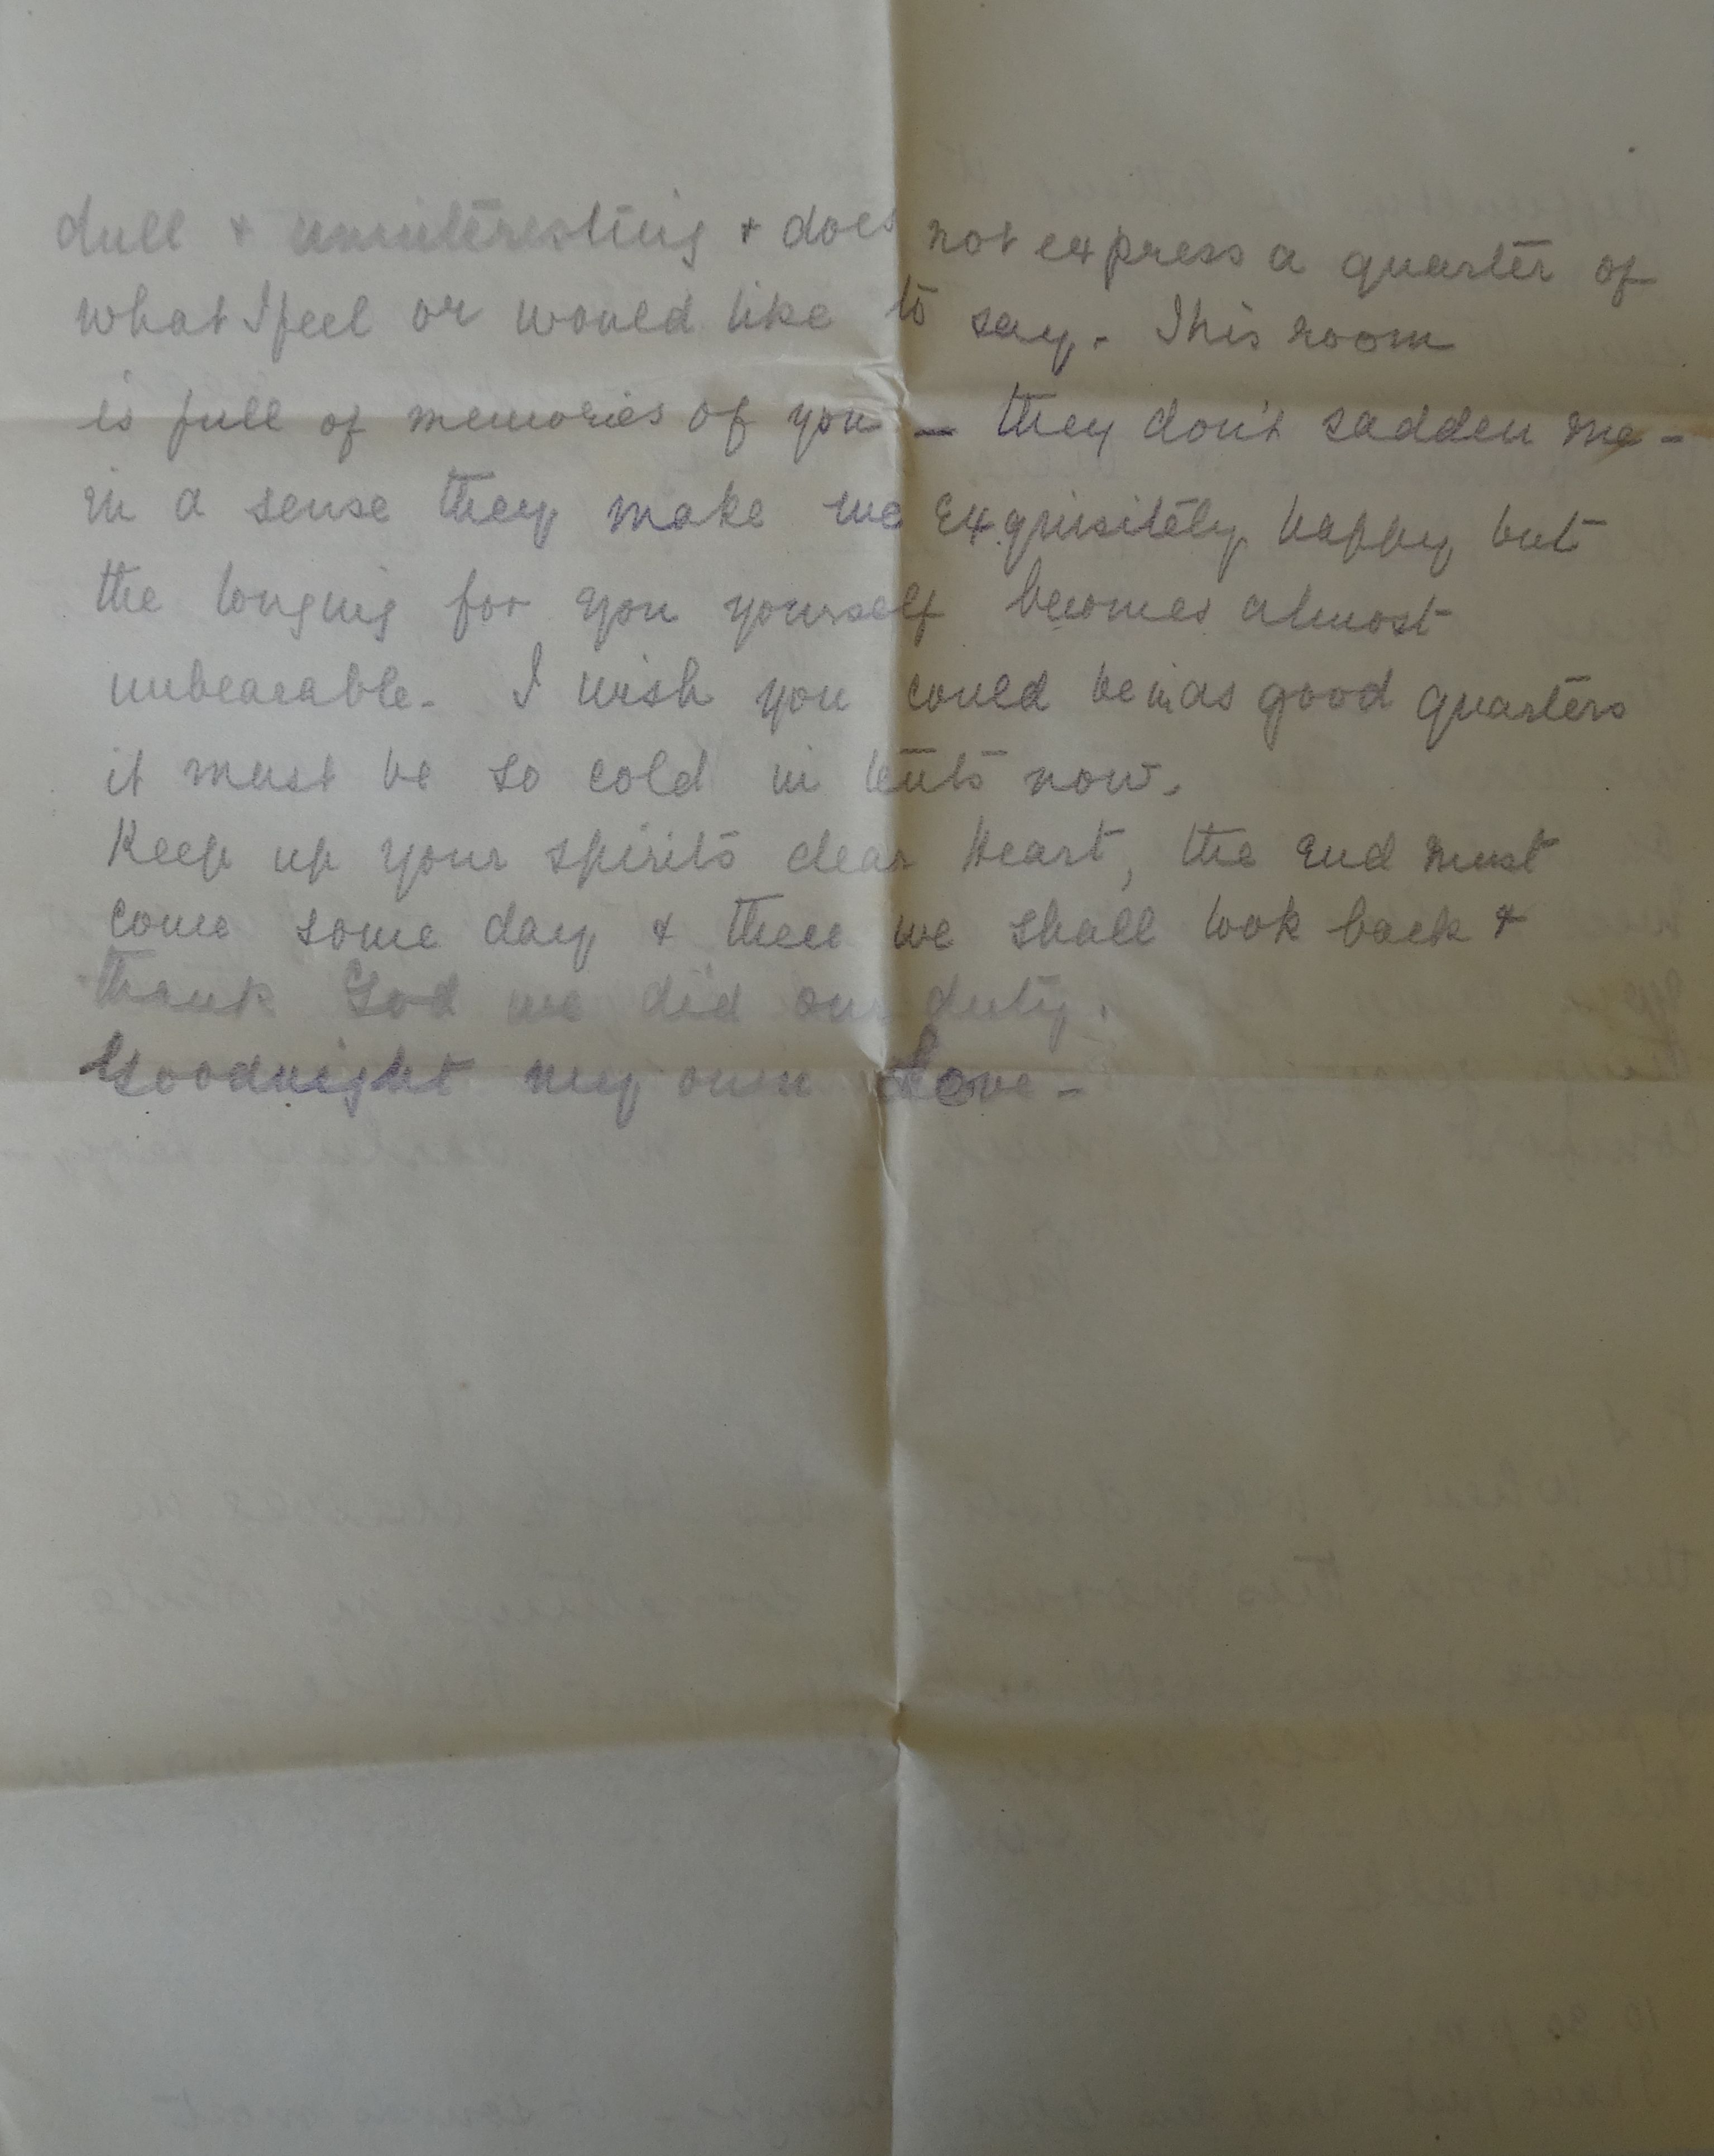 dull + uninteresting + does not express a quarter of
what I feel or would like to say. This room
is full of memories of you — they don't sadden me -
in a sense they make me exquisitely happy but
the longing for you yourself becomes almost
unbearable. I wish you could be in as good quarters
it must be so cold in tents now.
Keep up your spirits dear Heart, the end must
come some day + then we shall look back +
thank God we did our duty.
Goodnight my own Love -